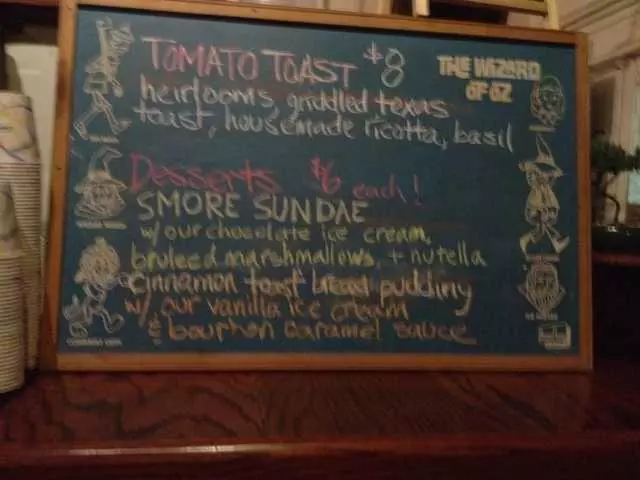 TOMATO TOAST $8
THE WIZARD
OF OZ
heirlooms, griddled texas
toast, housemade ricotta, basil
Desserts $6 each!
SMORE SUNDAE
w/ our chocolate ice cream,
bruleed marshmallows, + nutella
cinnamon toast bread pudding
w/ our vanilla ice cream
& bourbon caramel sauce